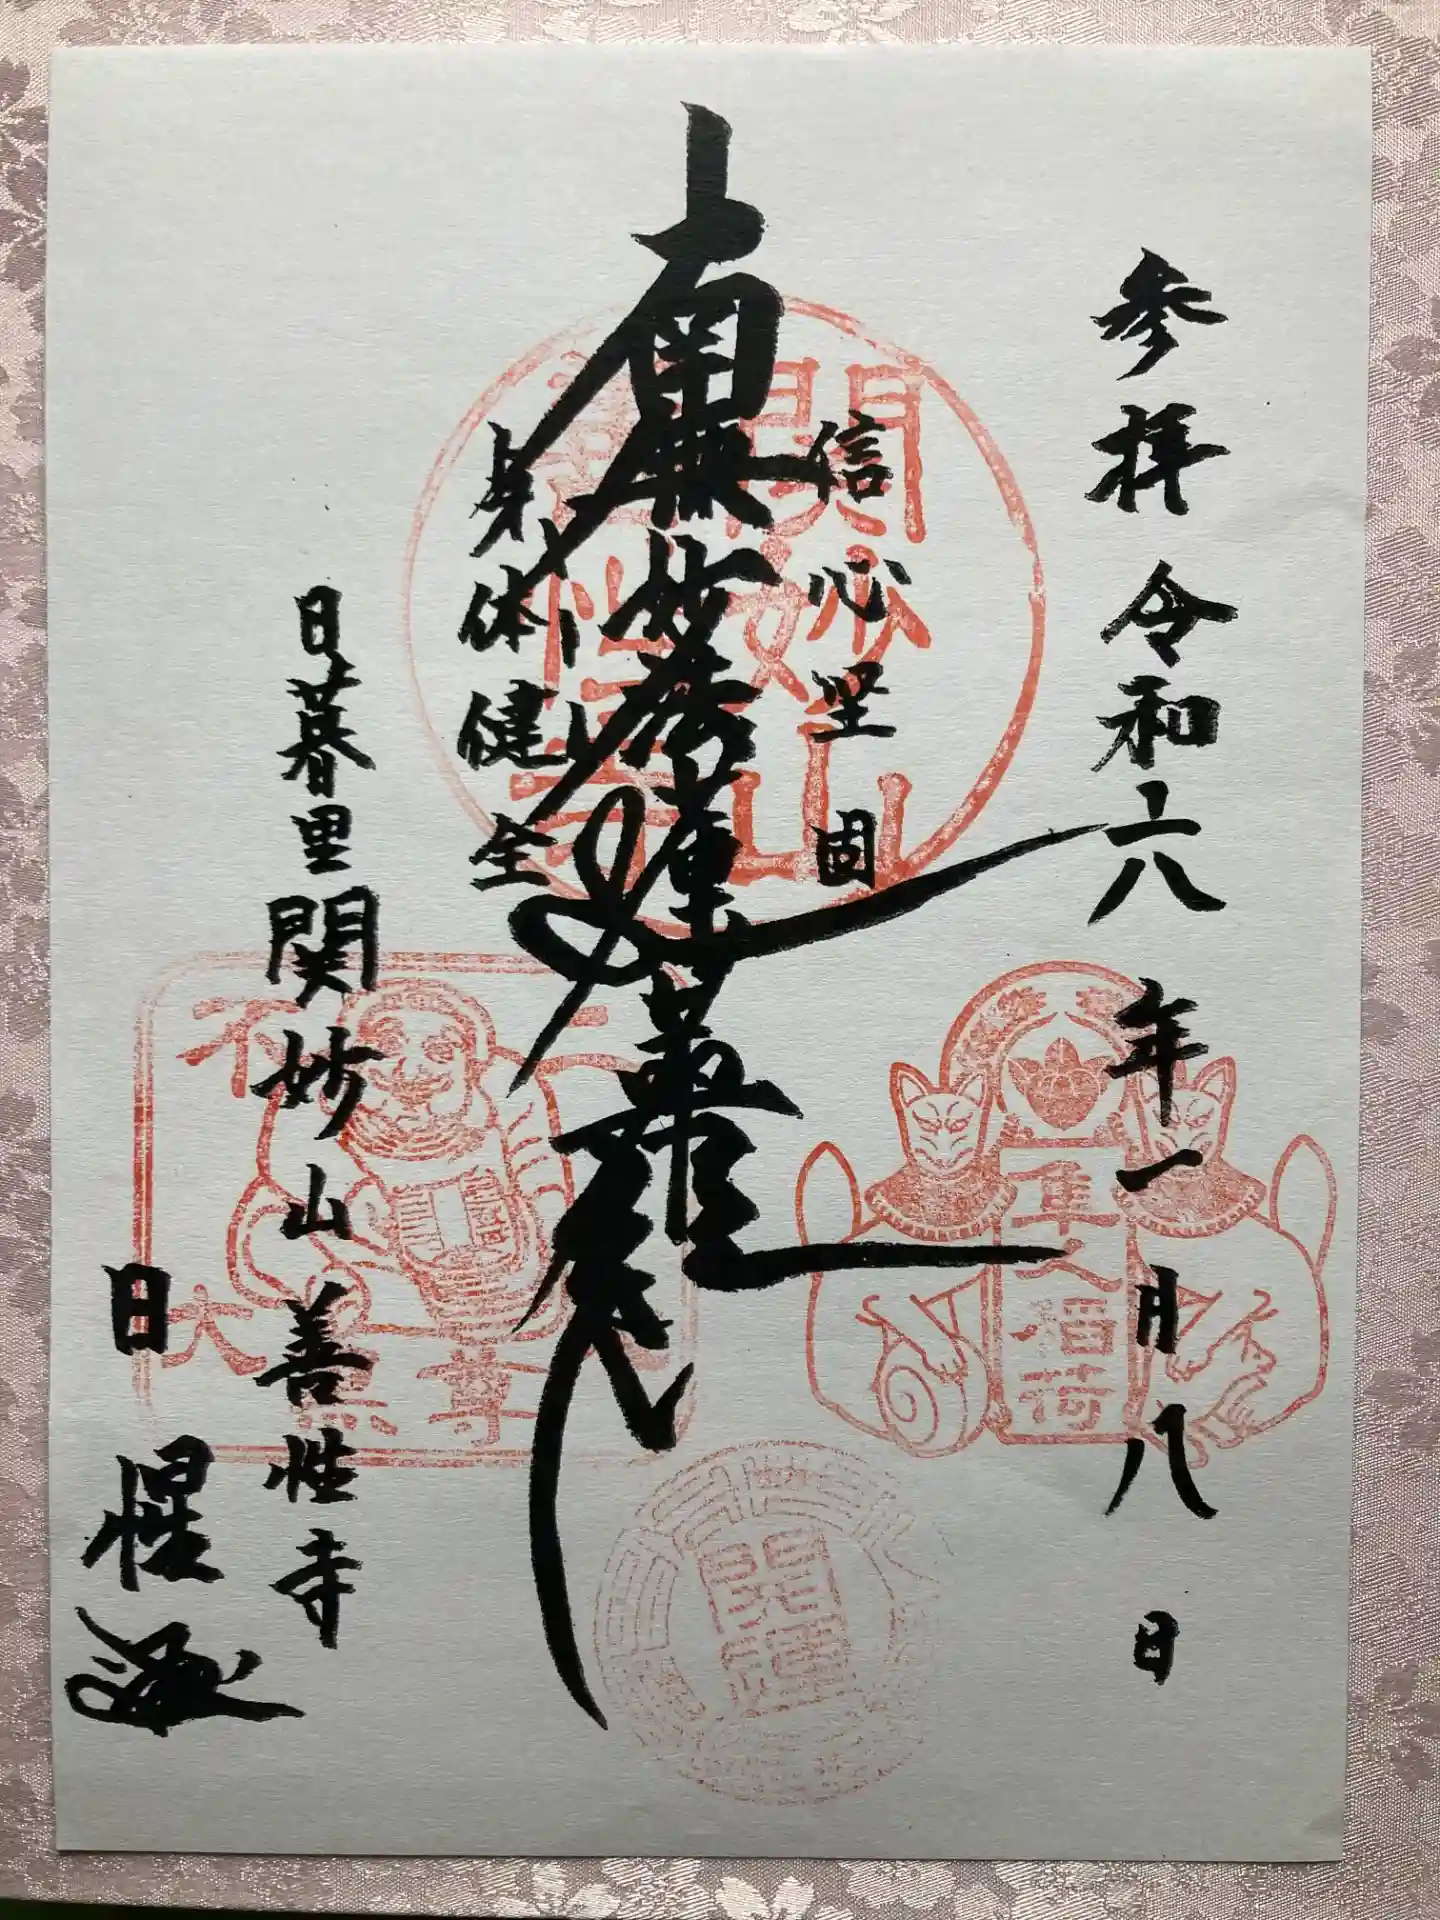 参拝 令和六年一月八日
信心坚固
南無妙法蓮華経
身体健全
日暮里 関妙山 善性寺
日惺
関妙山
善性寺
隼人稲荷
不二
大黒尊
開運